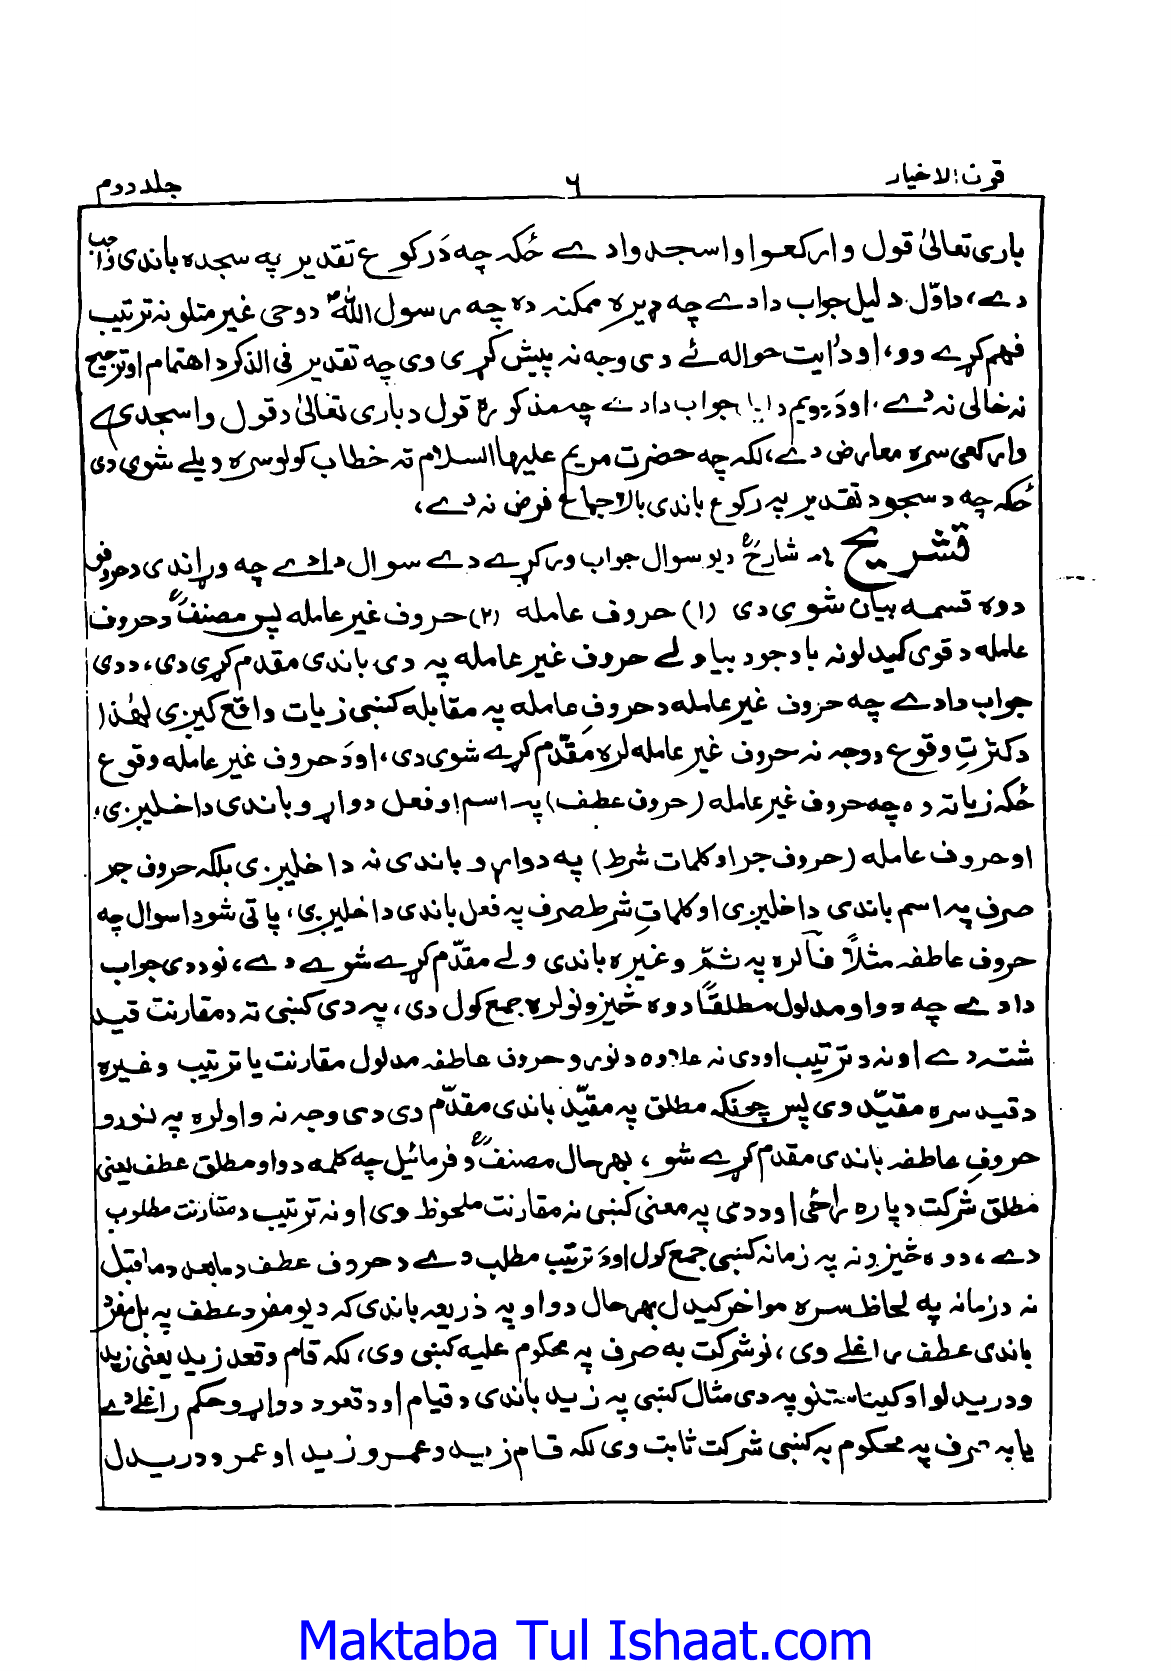 قوت الاخیار ۶ جلد دوم
باری تعالیٰ قول وارکعوا واسجدوا دے ځکہ چہ دَ رکوع تقدیر پہ سجدہ باندی واجب
دے، داوّل دلیل جواب دادے چہ ډیرہ ممکنہ دہ چہ رسول اللہ دوحی غیر متلو نہ ترتیب
فهم کړے وو، او دَ ایت حوالہ ئے د دی وجہ نہ پیش کړی وی چہ تقدیر فی الذکر د اهتمام او ترجیح
نہ خالی نہ دے. او دَ دویم دا جواب دادے چہ مذکورہ قول د باری تعالیٰ د قول واسجدی
وارکعی سرہ معارض دے، لکہ چہ حضرت مریم علیها السلام تہ خطاب کولو سرہ ویلے شوی دی
ځکہ چہ د سجود تقدیر پہ رکوع باندی بالاجماع فرض نہ دے،
تشریح :- شارحؒ دیو سوال جواب ورکړے دے سوال دادے چہ وړاندی د حروفو
دوہ قسمہ بیان شوی دی (۱) حروف عاملہ (۲) حروف غیر عاملہ پس مصنفؒ د حروف
عاملہ د قوی کیدلو نہ باوجود بیا ولے حروف غیر عاملہ پہ دی باندی مقدم کړی دی، د دی
جواب دادے چہ حروف غیر عاملہ د حروفِ عاملہ پہ مقابلہ کښی زیات واقع کیږی لهٰذا
د کثرتِ وقوع د وجہ نہ حروف غیر عاملہ لرہ مقدّم کړے شوی دی، او دَ حروف غیر عاملہ وقوع
ځکہ زیاتہ دہ چہ حروف غیر عاملہ (حروف عطف) پہ اسم او فعل دواړو باندی داخلیږی،
او حروف عاملہ (حروف جر او کلمات شرط) پہ دواړو باندی نہ داخلیږی بلکہ حروف جر
صرف پہ اسم باندی داخلیږی او کلماتِ شرط صرف پہ فعل باندی داخلیږی، پاتی شو دا سوال چہ
حروف عاطفہ مثلاً فآ لرہ پہ ثمّ وغیرہ باندی ولے مقدّم کړے شوے دے، نو د دی جواب
دادے چہ د واو مدلول مطلقاً دوہ څیزونو لرہ جمع کول دی، پہ دی کښی نہ د مقارنت قید
شتہ دے او نہ د ترتیب او دی نہ علاوہ د نورو حروف عاطفہ مدلول مقارنت یا ترتیب وغیرہ
د قید سرہ مقیّد وی پس چونکہ مطلق پہ مقیّد باندی مقدّم دی دی وجہ نہ واو لرہ پہ نورو
حروفِ عاطفہ باندی مقدم کړے شو، بهرحال مصنفؒ فرمائیل چہ کلمہ د واو مطلق عطف یعنی
مطلق شرکت دپارہ راځی او د دی پہ معنی کښی نہ مقارنت ملحوظ وی او نہ ترتیب د مقارنت مطلوب
دے، دوہ څیزونہ پہ زمانہ کښی جمع کول او دَ ترتیب مطلب دے د حروف عطف د مابعد د ماقبل
نہ د زمانہ پہ لحاظ سرہ مواخر کیدل بهرحال د واو پہ ذریعہ باندی کہ دیو مفرد عطف پہ بل مفرد
باندی عطف راغلے وی، نو شرکت بہ صرف پہ محکوم علیہ کښی وی، لکہ قام وقعد زید یعنی زید
ودریدلو او کیناستنو پہ دی مثال کښی پہ زید باندی د قیام او د قعود دواړو حکم راغلے دے
یا بہ صرف پہ محکوم بہ کښی شرکت ثابت وی لکہ قام زید وعمرو زید او عمرو ودریدل
Maktaba Tul Ishaat.com